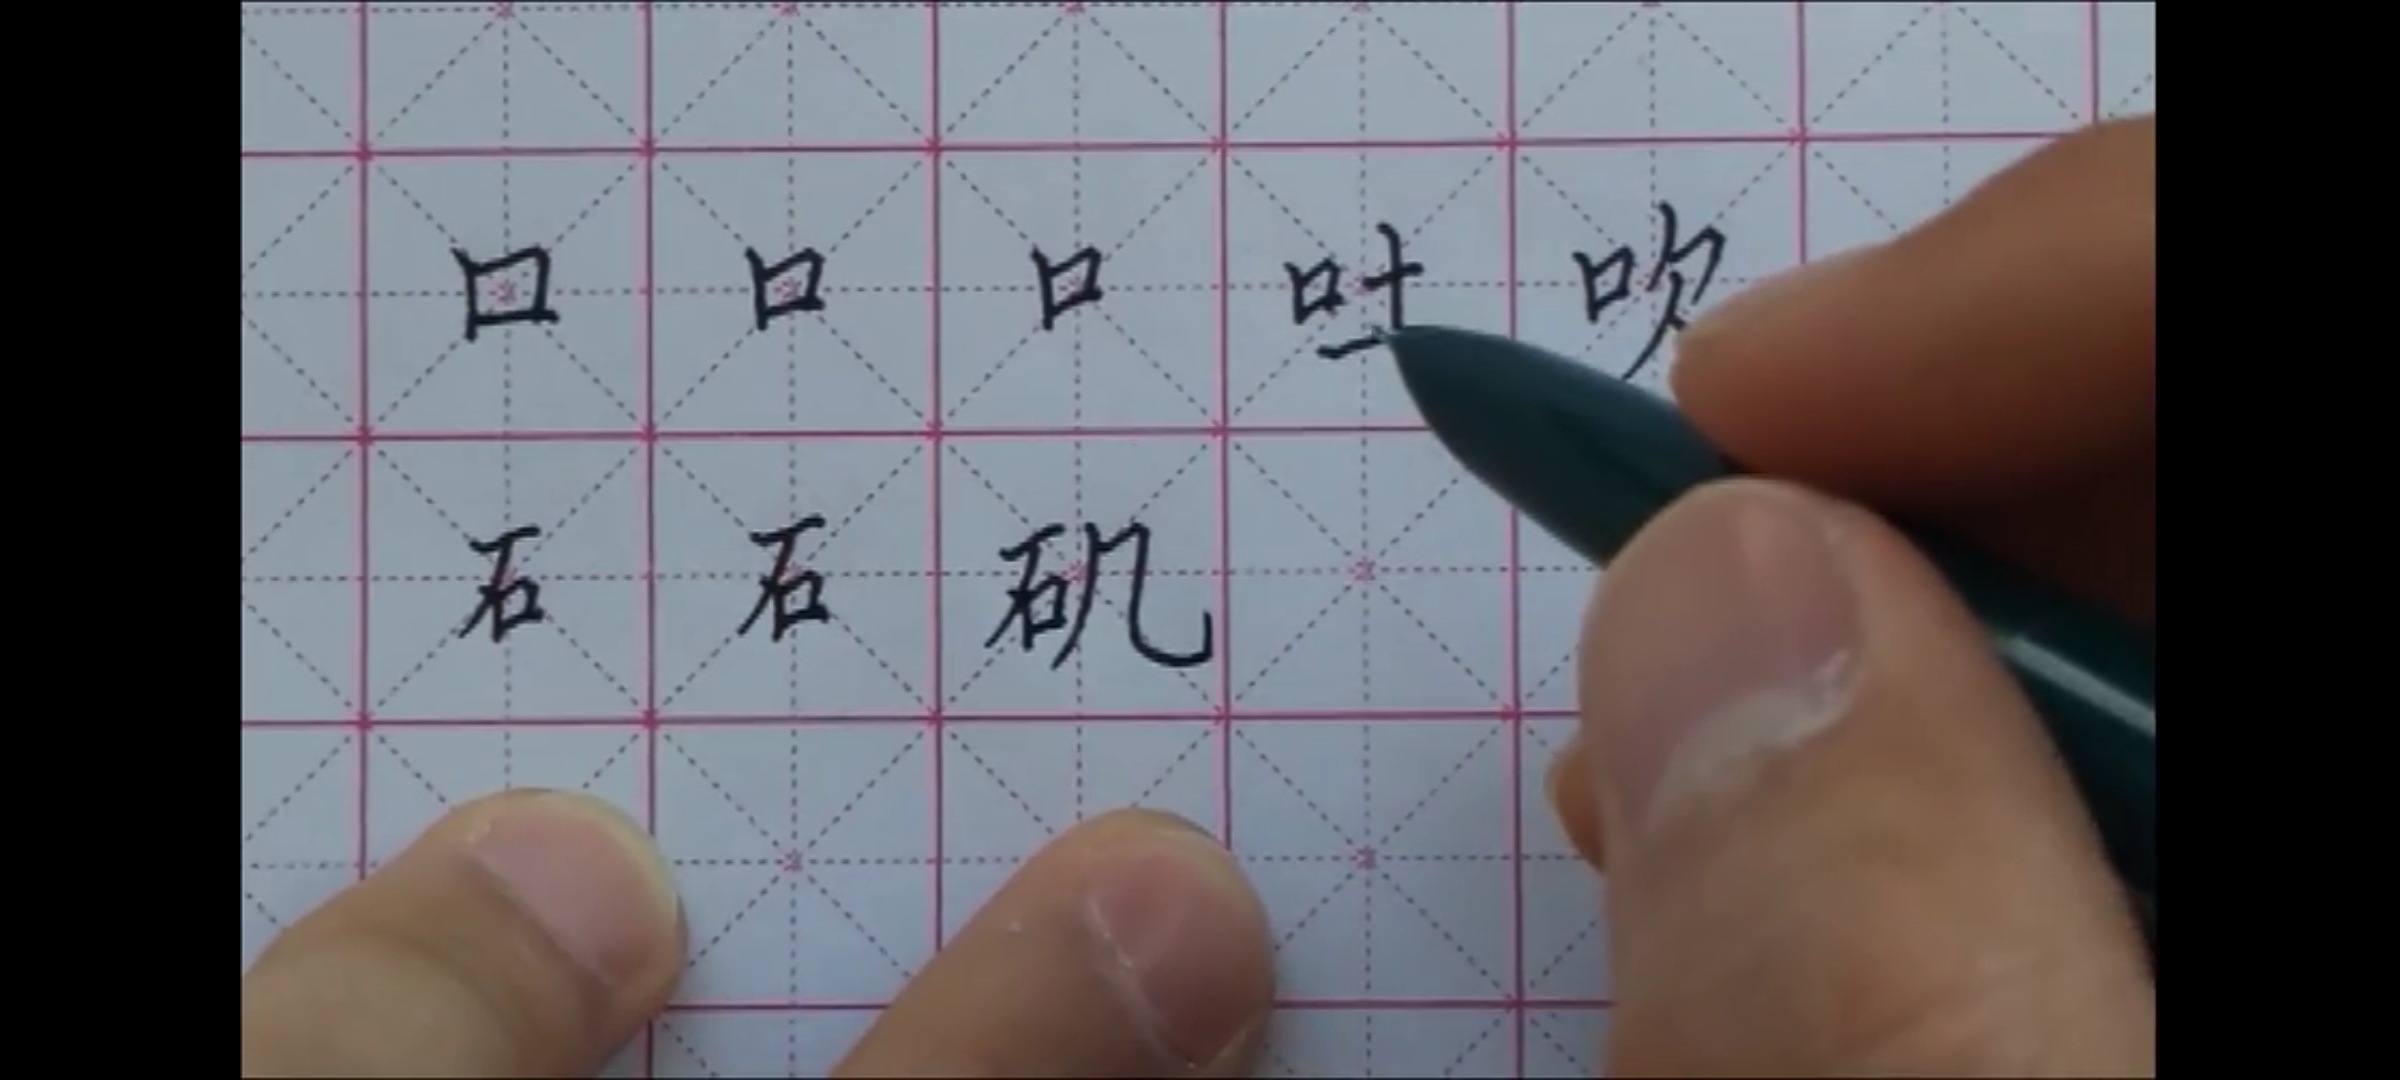 口 口 口 吐 吹
石 石 矶